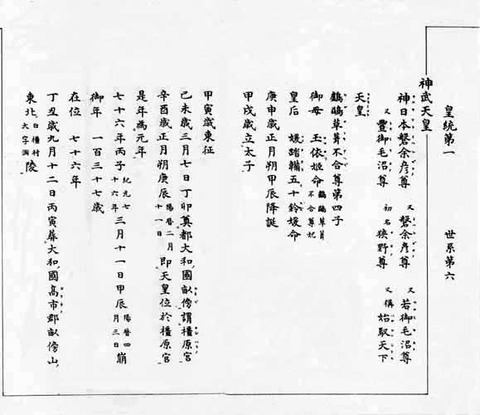 皇統第一 世系第六
神武天皇
神日本磐余彦尊 又 磐余彦尊 又 若御毛沼尊
又 豊御毛沼尊 初名 狹野尊 又稱 始馭天下
天皇
鸕鶿草葺不合尊第四子
御母 玉依姫命 鸕鶿草葺不合尊妃
皇后 媛蹈鞴五十鈴媛命
庚申歳正月朔甲辰降誕
甲戌歳立太子
甲寅歳東征
己未歳三月七日丁卯奠都大和國畝傍謂橿原宮
辛酉歳正月朔庚辰 陽暦二月十一日 即天皇位於橿原宮
是年爲元年
七十六年丙子 紀元七十六年 三月十一日甲辰 陽暦四月三日 崩
御年 一百三十七歳
在位 七十六年
丁丑歳九月十二日丙寅葬大和國高市郡畝傍山
東北 白橿村大字洞 陵